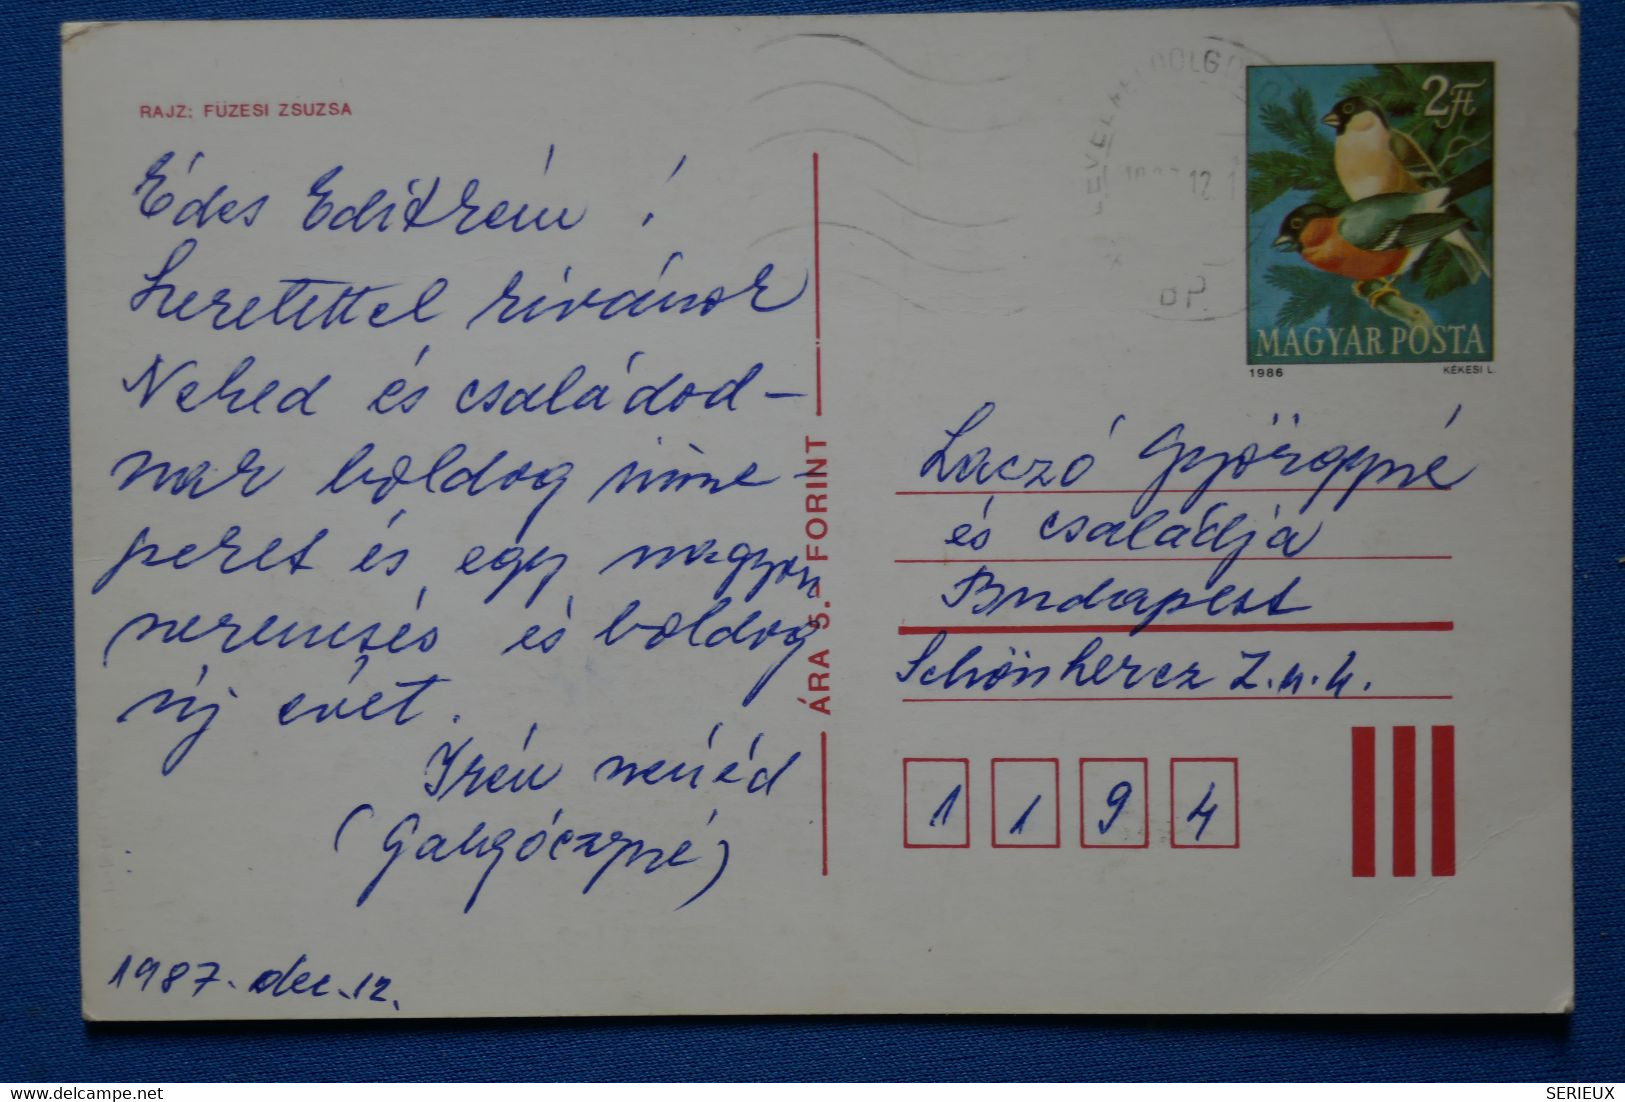 RAJZ: FÜZESI ZSUZSA
Édes Editkém!
Szeretettel kivánok
Neked és családod-
nak boldog ünne-
peket és egy nagyon
szerencsés és boldog
új évet.
Irén nénéd
(Galgóczyné)
1987. dec. 12.
ÁRA 5.- FORINT
BP.
2 Ft
MAGYAR POSTA
1986 KÉKESI L.
Laczó Györgyné
és családja
Budapest
Schönhercz Z. u. 4.
1 1 9 4
SERIEUX